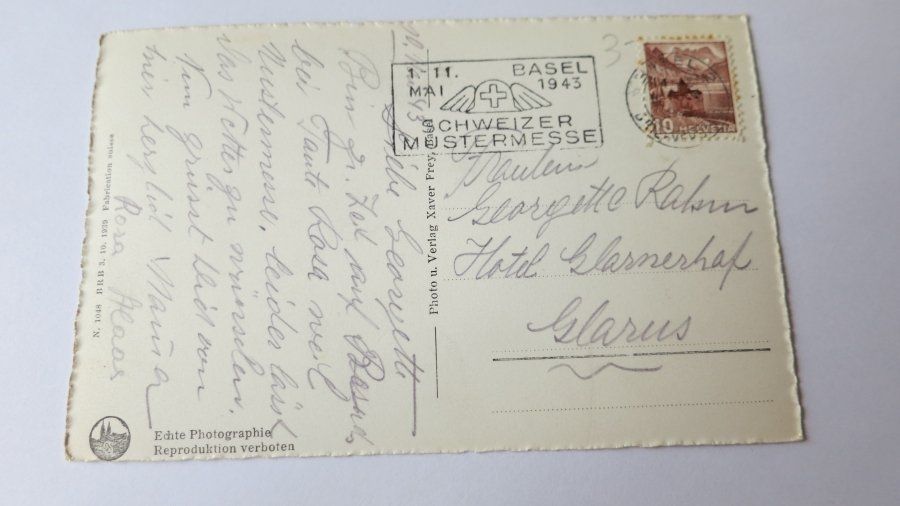 1.-11. BASEL
MAI 1943
SCHWEIZER
MUSTERMESSE
10
HELVETIA
3
Fräulein
Georgette Rahm
Hotel Glarnerhof
Glarus
Photo u. Verlag Xaver Frey, Basel
Liebe Georgette
Bin gr. Zeit auf Besuch
bei Tante Rosa weil
Mustermesse, leider lässt
das Wetter zu wünschen.
Nun grüsst Dich von
hier herzlich Mama
Rosa Haas
N. 1048 BRB 3. 10. 1939 Fabrication suisse
Echte Photographie
Reproduktion verboten